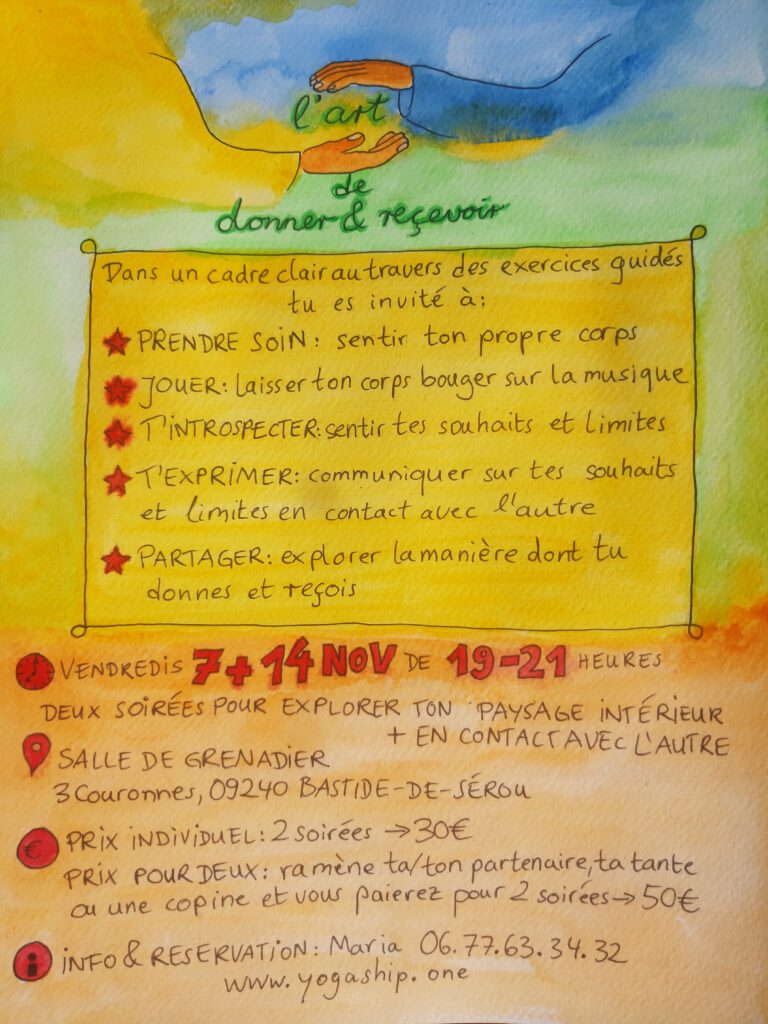 l'art
de
donner & reçevoir
Dans un cadre clair au travers des exercices guidés
tu es invité à:
PRENDRE SOIN: sentir ton propre corps
JOUER: laisser ton corps bouger sur la musique
T'INTROSPECTER: sentir tes souhaits et limites
T'EXPRIMER: communiquer sur tes souhaits
et limites en contact avec l'autre
PARTAGER: explorer la manière dont tu
donnes et reçois
VENDREDIS 7+14 NOV DE 19-21 HEURES
DEUX SOIRÉES POUR EXPLORER TON PAYSAGE INTÉRIEUR
+ EN CONTACT AVEC L'AUTRE
SALLE DE GRENADIER
3 Couronnes, 09240 BASTIDE-DE-SÉROU
€ PRIX INDIVIDUEL: 2 soirées → 30€
PRIX POUR DEUX: ramène ta/ton partenaire, ta tante
ou une copine et vous paierez pour 2 soirées → 50€
i INFO & RESERVATION: Maria 06.77.63.34.32
www.yogaship.one